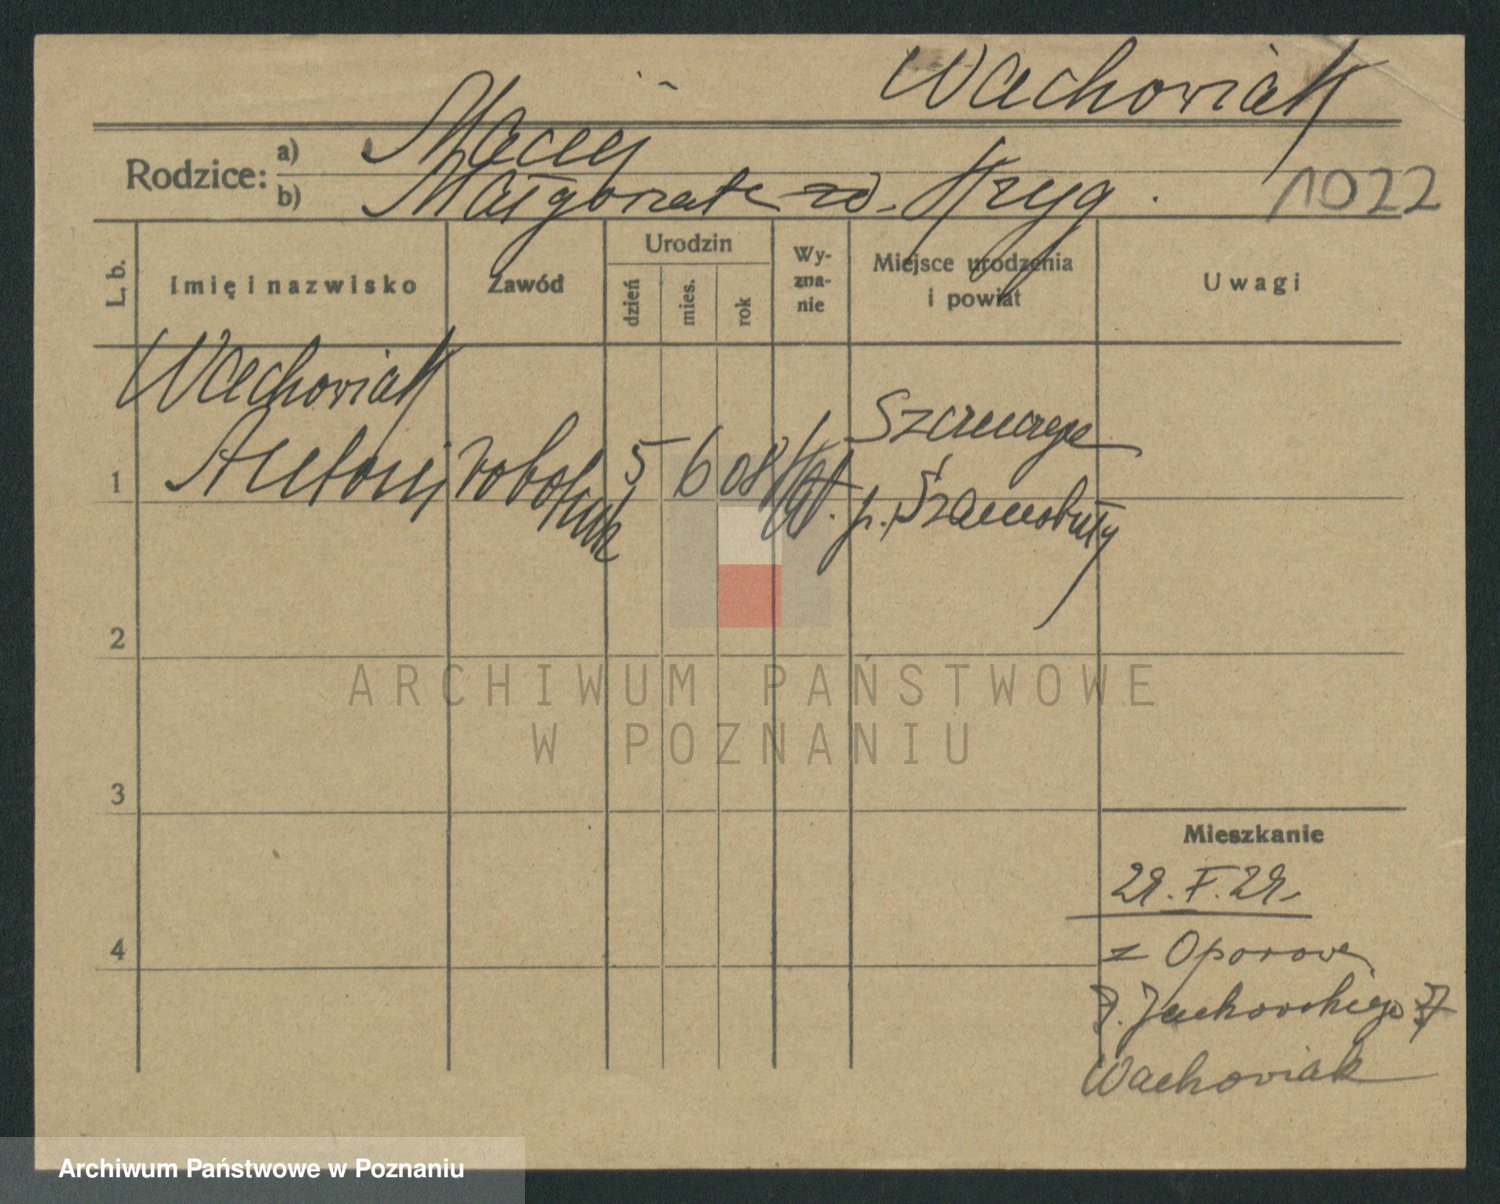 Wachowiak
Rodzice: a) Maciej
b) Małgorzata zd. Kryg. 1022
L. b. Imię i nazwisko Zawód Urodzin dzień mies. rok Wyznanie Miejsce urodzenia i powiat Uwagi
Wachowiak
1 Antoni robotnik 5 6 08 kat.
p. Szamotuły
2
3
4
Mieszkanie
z Oporowa
Jackowskiego
Wachowiak
ARCHIWUM PAŃSTWOWE
W POZNANIU
Archiwum Państwowe w Poznaniu